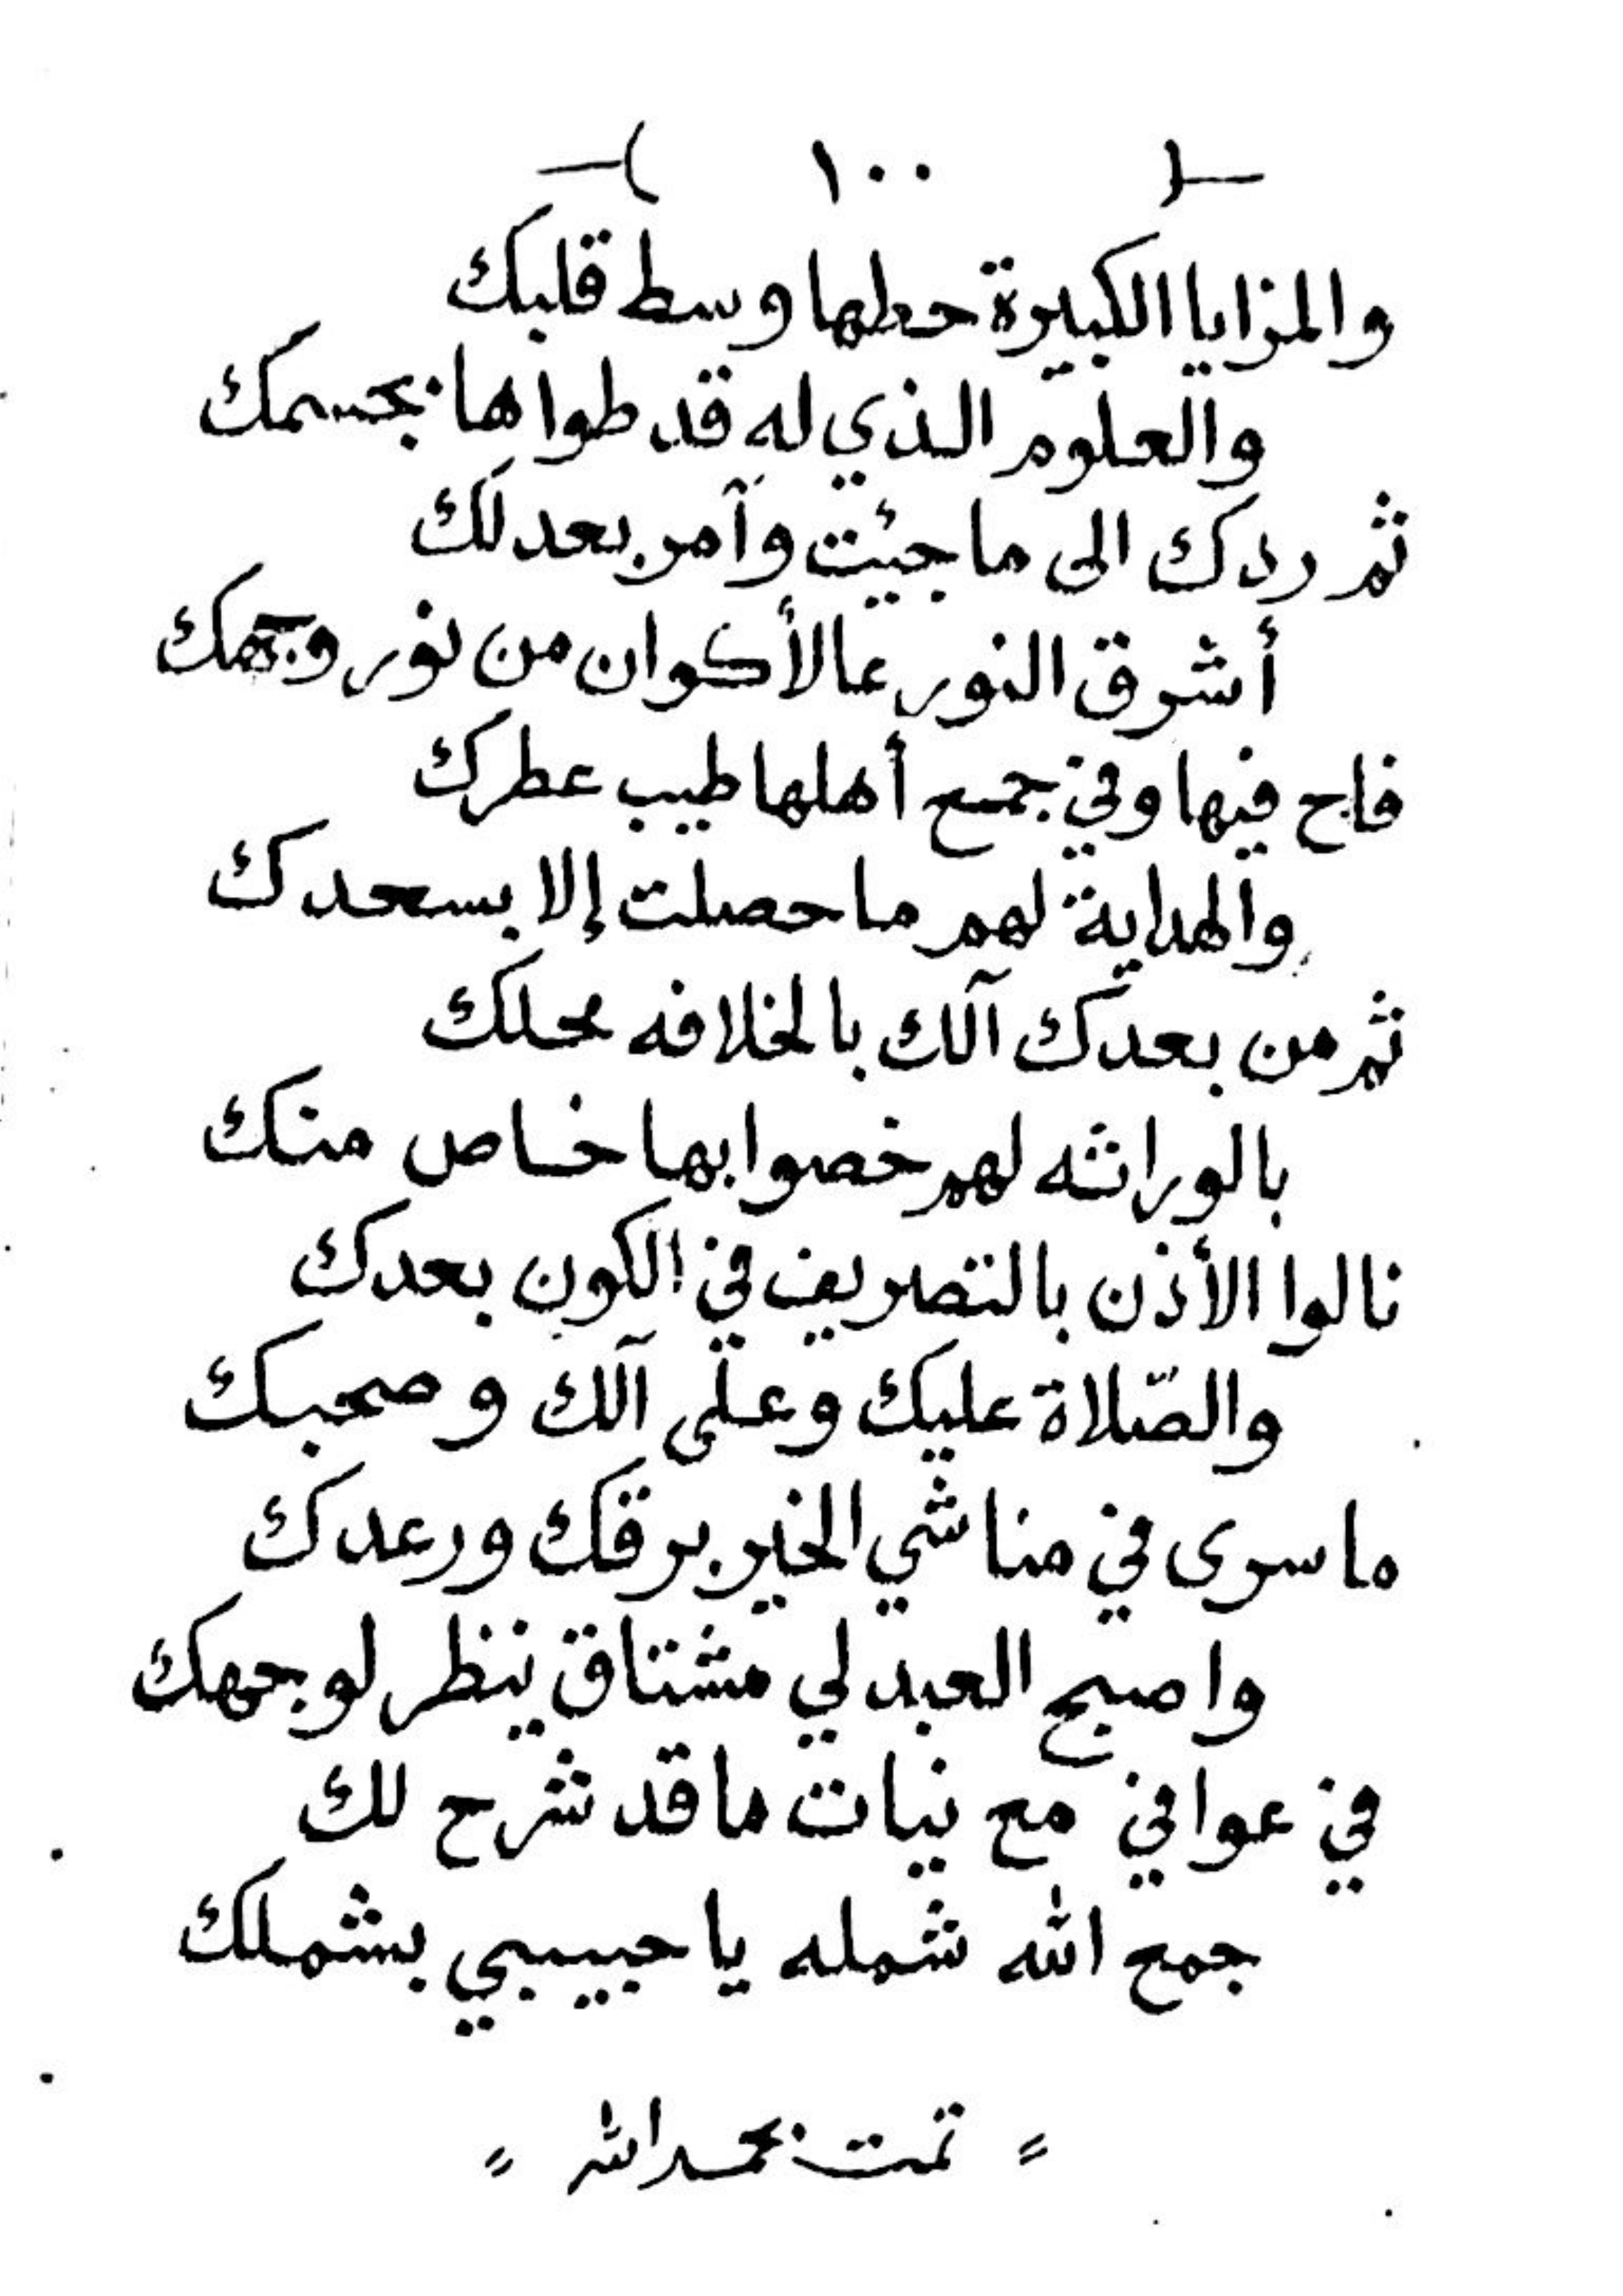 -( ١٠٠ )-
والمزايا الكبيرة حطها وسط قلبك
والعلوم الذي له قد طواها بجسمك
ثم ردك الى ما جيئت وآمر بعدلك
أشرق النور عالأكوان من نور وجهك
فاح فيها وفي جميع أهلها طيب عطرك
والهداية لهم ما حصلت إلا بسعدك
ثم من بعدك آلك بالخلافه محلك
بالوراثه لهم خصوا بها خاص منك
نالوا الأذن بالتصريف في الكون بعدك
والصّلاة عليك وعلى آلك وصحبك
ما سرى في مناشي الخير برقك ورعدك
واصبح العبد لي مشتاق ينظر لوجهك
في عوافي مع نيات ما قد شرح لك
جمع الله شمله يا حبيبي بشملك
= تمت بحمد الله =